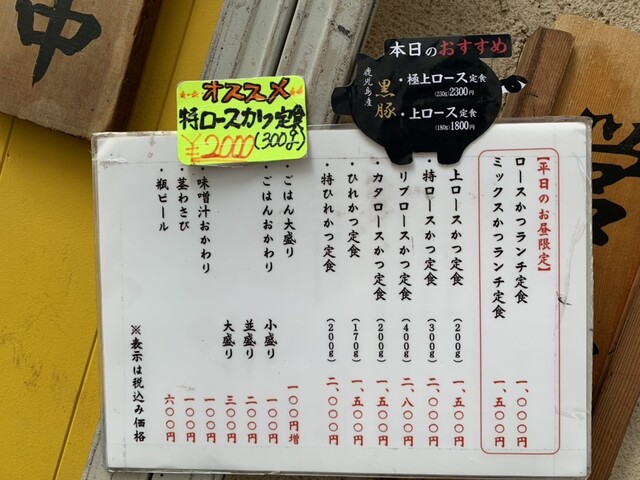 中
オススメ
特ロースかつ定食
(300g)
¥2000
本日のおすすめ
鹿児島産
黒豚
・極上ロース定食
(230g)2300円
・上ロース定食
(180g)1800円
【平日のお昼限定】
ロースかつランチ定食 一、〇〇〇円
ミックスかつランチ定食 一、五〇〇円
・上ロースかつ定食 (200g) 一、五〇〇円
・特ロースかつ定食 (300g) 二、〇〇〇円
・リブロースかつ定食 (400g) 二、八〇〇円
・カタロースかつ定食 (200g) 一、五〇〇円
・ひれかつ定食 (170g) 一、五〇〇円
・特ひれかつ定食 (200g) 二、〇〇〇円
・ごはん大盛り 一〇〇円増
・ごはんおかわり 小盛り 一〇〇円
並盛り 二〇〇円
大盛り 三〇〇円
・味噌汁おかわり 一〇〇円
・茎わさび 一〇〇円
・瓶ビール 六〇〇円
※表示は税込み価格